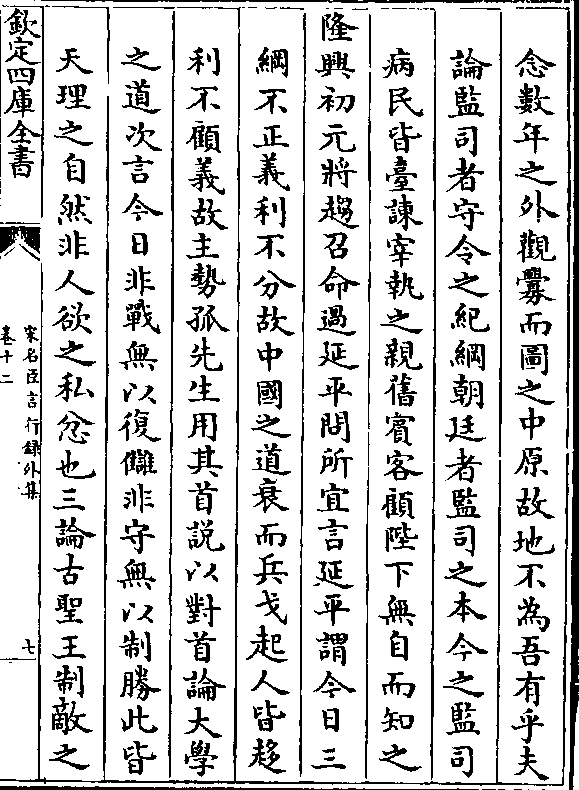 念數年之外觀釁而圖之中原故地不為吾有乎夫
論監司者守令之紀綱朝廷者監司之本今之監司
病民皆臺諫宰執之親舊賓客顧陛下無自而知之
隆興初元將趨召命過延平問所宜言延平謂今日三
綱不正義利不分故中國之道衰而兵戈起人皆趍
利不顧義故主勢孤先生用其首說以對首論大學
之道次言今日非戰無以復讎非守無以制勝此皆
天理之自然非人欲之私忿也三論古聖王制敵之
欽定四庫全書
宋名臣言行錄外集
卷十二
七